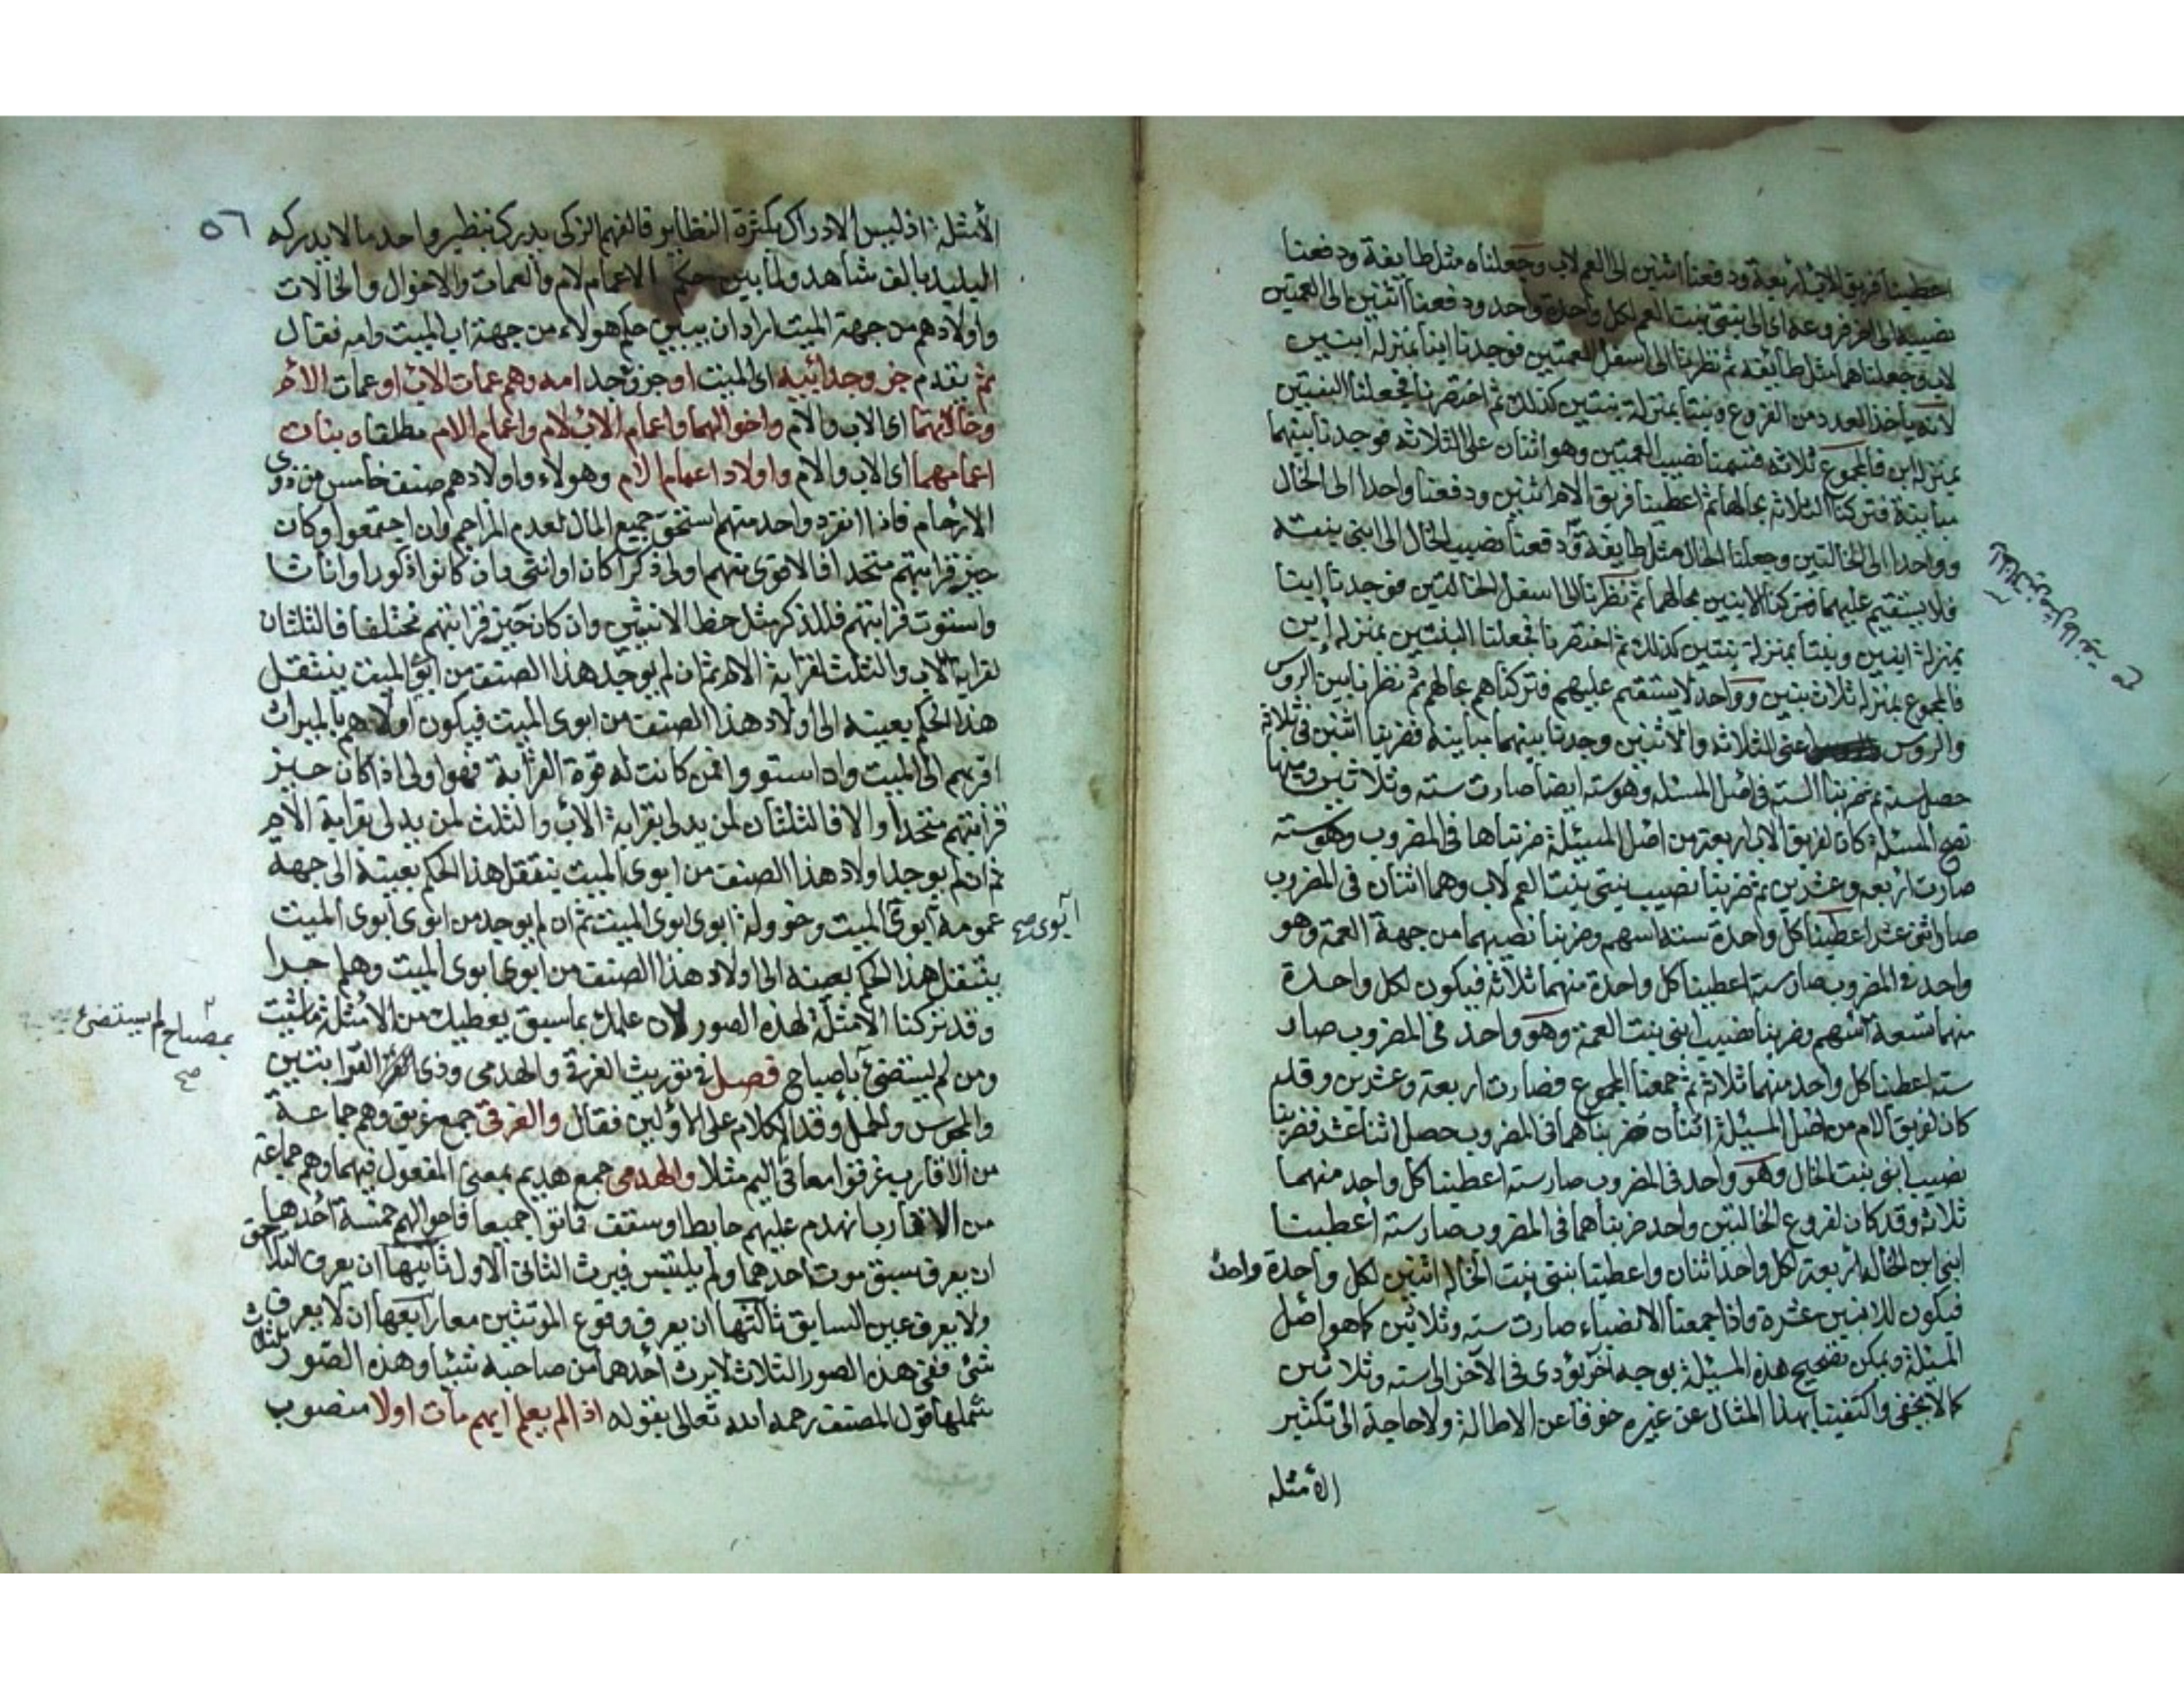 اعطينا فريق الاب اربعة ودفعنا اثنين الى العم لاب وجعلناه مثل طايفة ودفعنا
نصيبه الى اخر فروعه اى الى بنتى بنت العم لكل واحدة واحد ودفعنا اثنين الى العمتين
لاب وجعلناهما مثل طايفة ثم نظرنا الى اسفل العمتين فوجدنا ابنا بمنزلة ابنين
لانه ياخذ العدد من الفروع وبنتا بمنزلة بنتين كذلك ثم اختصرنا فجعلنا البنتين
بمنزلة ابن فالمجموع ثلاثة فقسمنا نصيب العمتين وهو اثنان على الثلاثة فوجدنا بينهما
مباينة فتركنا الثلاثة بحالها ثم اعطينا فريق الام اثنين ودفعنا واحدا الى الخال
وواحدا الى الخالتين وجعلنا الخال مثل طايفة ودفعنا نصيب الخال الى ابنى بنته
فلا يستقيم عليهما فتركنا الابنين بحالهما ثم نظرنا الى اسفل الخالتين فوجدنا ابنا
بمنزلة ابنين وبنتا بمنزلة بنتين كذلك ثم اختصرنا فجعلنا البنتين بمنزلة ابن
فالمجموع بمنزلة ثلاث بنين وواحد لا يستقيم عليهم فتركناهم بحالهم ثم نظرنا بين الروس
والروس اعنى الثلاثة والاثنين وجدنا بينهما مباينة فضربنا اثنين فى ثلاثة
حصل ستة ثم ضربنا الستة فى اصل المسئلة وهو ستة ايضا صارت ستة وثلاثين ومنها
تصح المسئلة كان لفريق الاب اربعة من اصل المسئلة ضربناها فى المضروب وهو ستة
صارت اربعة وعشرين ثم ضربنا نصيب بنتى بنت العم لاب وهما اثنان فى المضروب
صار اثنى عشر اعطينا كل واحدة ستة اسهم وضربنا نصيبهما من جهة العمة وهو
واحد فى المضروب صار ستة اعطينا كل واحدة منهما ثلاثة فيكون لكل واحدة
منهما تسعة اسهم وضربنا نصيب ابنى بنت العمة وهو واحد فى المضروب صار
ستة اعطينا كل واحد منهما ثلاثة ثم جمعنا المجموع فصارت اربعة وعشرين وقد
كان لفريق الام من اصل المسئلة اثنان ضربناهما فى المضروب حصل اثنا عشر فضربنا
نصيب ابنى بنت الخال وهو واحد فى المضروب صار ستة اعطينا كل واحد منهما
ثلاثة وقد كان لفروع الخالتين واحد ضربناهما فى المضروب صار ستة اعطينا
ابنى ابن الخالة اربعة لكل واحد اثنان واعطينا بنتى بنت الخالة اثنين لكل واحدة واحد
فيكون للابنين عشرة واذا جمعنا الانصباء صارت ستة وثلاثين كما هو اصل
المسئلة ويمكن تصحيح هذه المسئلة بوجه آخر يؤدى فى الآخر الى ستة وثلاثين
كما لا يخفى واكتفينا بهذا المثال عن غيره خوفا عن الاطالة ولا حاجة الى تكثير
الامثله
٥٦
الامثلة اذ ليس الادراك بكثرة النظاير فالفهم الزكى يدرك بنظير واحد ما لا يدركه
البليد بالف شاهد ولما بين حكم الاعمام لام والعمات والاخوال والخالات
واولادهم من جهة الميت اراد ان يبين حكم هولاء من جهة اب الميت وامه فقال
ثم يقدم جزؤ جد ابيه اى الميت او جزؤ جد امه وهم عمات الاب او عمات الام
وخالاتهما اى الاب والام واخوالهما واعمام الاب لام واعمام الام مطلقا وبنات
اعمامهما اى الاب والام واولاد اعمام الام وهولاء واولادهم صنف خامس من ذوى
الارحام فاذا انفرد واحد منهم استحق جميع المال لعدم المزاحم وان اجتمعوا وكان
حيز قرابتهم متحدا فالاقوى منهم اولى ذكرا كان او انثى وان كانوا ذكورا واناثا
واستوت قرابتهم فللذكر مثل حظ الانثيين وان كان حيز قرابتهم مختلفا فالثلثان
لقرابة الاب والثلث لقرابة الام ثم ان لم يوجد هذا الصنف من ابوى الميت ينتقل
هذا الحكم بعينه الى اولاد هذا الصنف من ابوى الميت فيكون اولاهم بالميراث
اقربهم الى الميت وان استووا فمن كانت له قوة القرابة فهو اولى اذا كان حيز
قرابتهم متحدا والا فالثلثان لمن يدلى بقرابة الاب والثلث لمن يدلى بقرابة الام
ثم ان لم يوجد اولاد هذا الصنف من ابوى الميت ينتقل هذا الحكم بعينه الى جهة
عمومة ابوى الميت وخوولة ابوى ابوى الميت ثم ان لم يوجد من ابوى ابوى الميت
ابوى صح
ينتقل هذا الحكم بعينه الى اولاد هذا الصنف من ابوى ابوى الميت وهلم جرا
وقد تركنا الامثلة لهذه الصور لان علمك بما سبق يعطيك من الامثلة ما شئت
ومن لم يستضئ باصباح فصل فى توريث الغرقى والهدمى وذى القرابتين
بمصباح لم يستضئ
صح
والمجوس والحمل وقدم الكلام على الاولين فقال والغرقى جمع غريق وهم جماعة
من الاقارب غرقوا معا فى اليم مثلا والهدمى جمع هديم بمعنى المفعول فيهما وهم جماعة
من الاقارب انهدم عليهم حايط او سقف فماتوا جميعا فاحوالهم خمسة احدها
ان يعرف سبق موت احدهما ولم يلتبس فيرث الثانى الاول ثانيها ان يعرف التلاحق
ولا يعرف عين السابق ثالثها ان يعرف وقوع الموتتين معا رابعها ان لا يعرف
شئ ففى هذه الصور الثلاث لا يرث احدهما من صاحبه شيئا وهذه الصور
تشملها قول المصنف رحمه الله تعالى بقوله اذا لم يعلم ايهم مات اولا منصوب